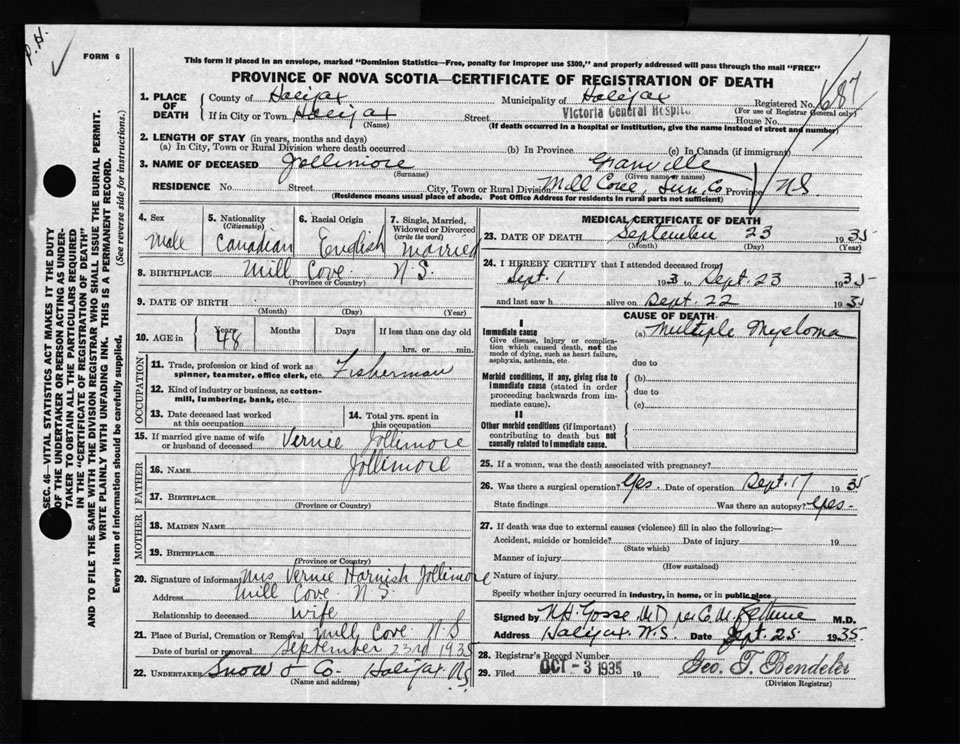 P.H.
FORM 6
This form if placed in an envelope, marked "Dominion Statistics—Free, penalty for improper use $300," and properly addressed will pass through the mail "FREE"
PROVINCE OF NOVA SCOTIA—CERTIFICATE OF REGISTRATION OF DEATH
SEC. 46—VITAL STATISTICS ACT MAKES IT THE DUTY
OF THE UNDERTAKER OR PERSON ACTING AS UNDER-
TAKER TO OBTAIN ALL THE PARTICULARS REQUIRED
IN THE "CERTIFICATE OF REGISTRATION OF DEATH"
AND TO FILE THE SAME WITH THE DIVISION REGISTRAR WHO SHALL ISSUE THE BURIAL PERMIT.
WRITE PLAINLY WITH UNFADING INK. THIS IS A PERMANENT RECORD.
Every item of information should be carefully supplied. (See reverse side for instructions.)
1. PLACE OF DEATH County of Halifax Municipality of Halifax Registered No. 687
(For use of Registrar General only)
If in City or Town Halifax Street Victoria General Hospital House No.
(Name) (If death occurred in a hospital or institution, give the name instead of street and number)
2. LENGTH OF STAY (in years, months and days)
(a) In City, Town or Rural Division where death occurred (b) In Province (c) In Canada (if immigrant)
3. NAME OF DECEASED Jollimore Granville
(Surname) (Given name or names)
RESIDENCE No. Street City, Town or Rural Division Mill Cove, Lun. Co Province NS
(Residence means usual place of abode. Post Office Address for residents in rural parts not sufficient)
4. Sex 5. Nationality (Citizenship) 6. Racial Origin 7. Single, Married, Widowed or Divorced (write the word)
Male Canadian English Married
8. BIRTHPLACE Mill Cove N.S.
(Province or Country)
9. DATE OF BIRTH
(Month) (Day) (Year)
10. AGE in Years Months Days If less than one day old
48 hrs. or min.
OCCUPATION
11. Trade, profession or kind of work as spinner, teamster, office clerk, etc. Fisherman
12. Kind of industry or business, as cotton-mill, lumbering, bank, etc.
13. Date deceased last worked at this occupation
14. Total yrs. spent in this occupation
15. If married give name of wife or husband of deceased Vernie Jollimore
FATHER
16. NAME Jollimore
17. BIRTHPLACE
(Province or Country)
MOTHER
18. MAIDEN NAME
19. BIRTHPLACE
(Province or Country)
20. Signature of informant Mrs Vernie Harnish Jollimore
Address Mill Cove N S
Relationship to deceased wife
21. Place of Burial, Cremation or Removal Mill Cove N S
Date of burial or removal September 23rd 1935
22. UNDERTAKER Snow & Co. Halifax NS
(Name and address)
MEDICAL CERTIFICATE OF DEATH
23. DATE OF DEATH September 23 1935
(Month) (Day) (Year)
24. I HEREBY CERTIFY that I attended deceased from
Sept. 1 193 to Sept. 23 1935
and last saw h alive on Sept. 22 1935
CAUSE OF DEATH
I
Immediate cause (a) Multiple Myeloma
Give disease, injury or complication which caused death, not the mode of dying, such as heart failure, asphyxia, asthenia, etc.
due to
Morbid conditions, if any, giving rise to immediate cause (stated in order proceeding backwards from immediate cause). (b)
due to
(c)
II
Other morbid conditions (if important) contributing to death but not causally related to immediate cause.
25. If a woman, was the death associated with pregnancy?
26. Was there a surgical operation? Yes. Date of operation Sept. 17 1935
State findings Was there an autopsy? Yes-
27. If death was due to external causes (violence) fill in also the following:—
Accident, suicide or homicide? Date of injury 19
(State which)
Manner of injury
(How sustained)
Nature of injury
Specify whether injury occurred in industry, in home, or in public place
Signed by N.H. Gosse M.D. per C. M. M.D.
Address Halifax N.S. Date Sept. 25 1935
28. Registrar's Record Number
29. Filed OCT - 3 1935 19 Geo. T. Bendeler
(Division Registrar)